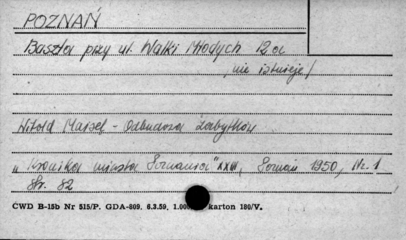 POZNAŃ
Baszta przy ul. Walki Młodych 12a
/nie istnieje/
Witold Maisel - Odbudowa zabytków
"Kronika miasta Poznania" XXIII, Poznań 1950, Nr. 1
Str. 82
CWD B-15b Nr 515/P. GDA-809. 6.3.59. 1.000 karton 180/V.